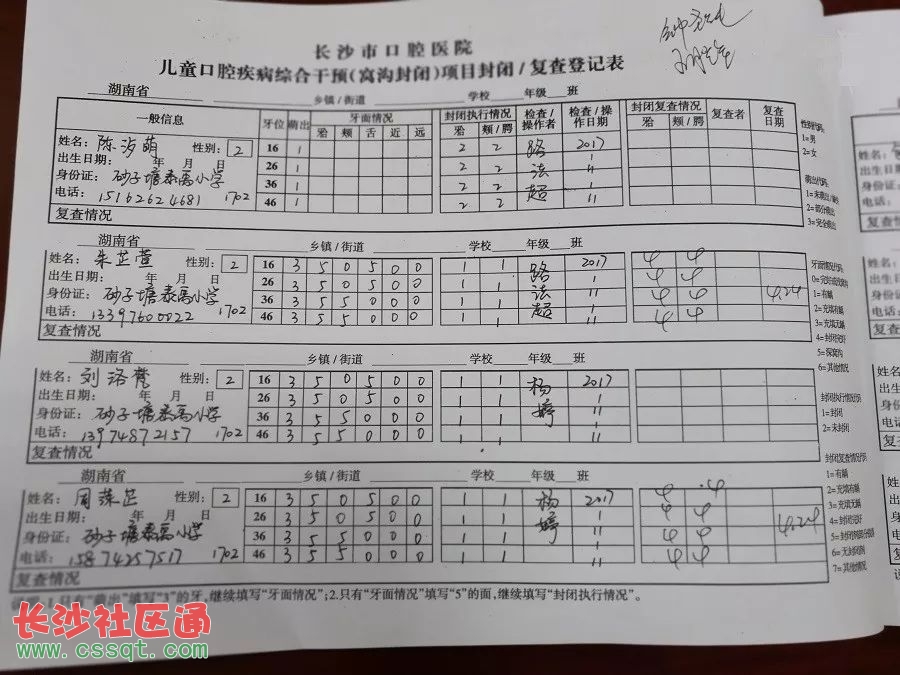 长沙市口腔医院
儿童口腔疾病综合干预(窝沟封闭)项目封闭/复查登记表
湖南省 乡镇/街道 学校 年级 班
一般信息 牙位 萌出 牙面情况 封闭执行情况 检查/操作者 检查/操作日期 封闭复查情况 复查者 复查日期
𬌗 颊 舌 近 远 𬌗 颊/腭 𬌗 颊/腭
姓名: 性别: 2 16 1 2 2 路 2017
出生日期: 年 月 日 26 1 2 2 法 〃
身份证: 砂子塘泰禹小学 36 1 2 2 超 〃
电话: 15162624681 1702 46 1 2 2 〃
复查情况
湖南省 乡镇/街道 学校 年级 班
姓名: 朱芷萱 性别: 2 16 3 5 0 5 0 0 1 1 路 2017 4 4
出生日期: 年 月 日 26 3 5 0 5 0 0 1 1 法 〃 4 4
身份证: 砂子塘泰禹小学 36 3 5 5 0 0 0 1 1 超 〃 4 4 4.24
电话: 13397600022 1702 46 3 5 5 0 0 0 1 1 〃 4 4
复查情况
湖南省 乡镇/街道 学校 年级 班
姓名: 刘洛 性别: 2 16 3 5 0 5 0 0 1 1 杨 2017
出生日期: 年 月 日 26 3 5 0 5 0 0 1 1 婷 〃
身份证: 砂子塘泰禹小学 36 3 5 5 0 0 0 1 1 〃
电话: 13974872157 1702 46 3 5 5 0 0 0 1 1 〃
复查情况
湖南省 乡镇/街道 学校 年级 班
姓名: 周 性别: 2 16 3 5 0 5 0 0 1 1 杨 2017 4 4
出生日期: 年 月 日 26 3 5 0 5 0 0 1 1 婷 〃 4 4
身份证: 砂子塘泰禹小学 36 3 5 5 0 0 0 1 1 〃 4 4 4.24
电话: 15874257517 1702 46 3 5 5 0 0 0 1 1 〃 4 4
复查情况
说明:1.只有"萌出"填写"3"的牙,继续填写"牙面情况";2.只有"牙面情况"填写"5"的面,继续填写"封闭执行情况"。
性别代码:
1=男
2=女
萌出代码:
2=部分萌出
3=完全萌出
1=有龋
2=充填有龋
3=充填无龋
4=封闭完好
5=深窝沟
6=其他情况
1=封闭
2=未封闭
1=有龋
2=充填有龋
3=充填无龋
4=封闭完好
6=无封闭剂
7=其他情况
长沙社区通
www.cssqt.com